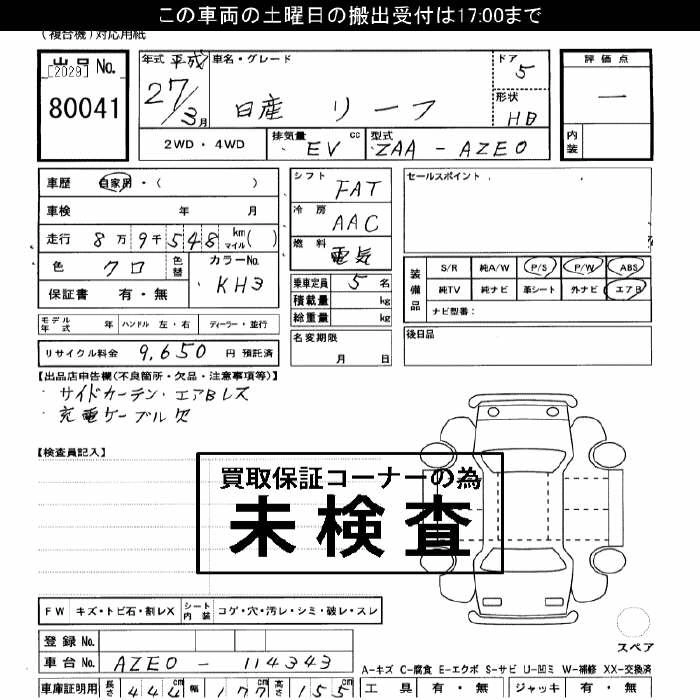 この車両の土曜日の搬出受付は17:00まで
(複合機)対応用紙
出品No.
[2029]
80041
年式 平成 27/3月
車名・グレード
日産 リーフ
ドア 5
形状 HB
2WD・4WD
排気量 EV cc
型式 ZAA-AZE0
評価点
―
内装
車歴 自家用・( )
車検 年 月
走行 8万9千548km マイル( )
色 クロ 色替
カラーNo. KH3
保証書 有・無
シフト FAT
冷房 AAC
燃料 電気
乗車定員 5名
積載量 kg
総重量 kg
セールスポイント
装備品
S/R 純A/W P/S P/W ABS
純TV 純ナビ 革シート 外ナビ エアB
ナビ型番:
モデル年式 年 ハンドル 左・右 ディーラー・並行
名変期限
月 日
後日品
リサイクル料金 9,650 円 預託済
【出品店申告欄(不良箇所・欠品・注意事項等)】
・サイドカーテン・エアBレス
・充電ケーブル欠
【検査員記入】
買取保証コーナーの為
未検査
FW キズ・トビ石・割レX シート内装 コゲ・穴・汚レ・シミ・破レ・スレ
スペア
登録No.
車台No. AZE0-114343
A-キズ C-腐食 E-エクボ S-サビ U-凹ミ W-補修 XX-交換済
車庫証明用 長さ 444cm 幅 177cm 高さ 155cm
工具 有・無 ジャッキ 有・無